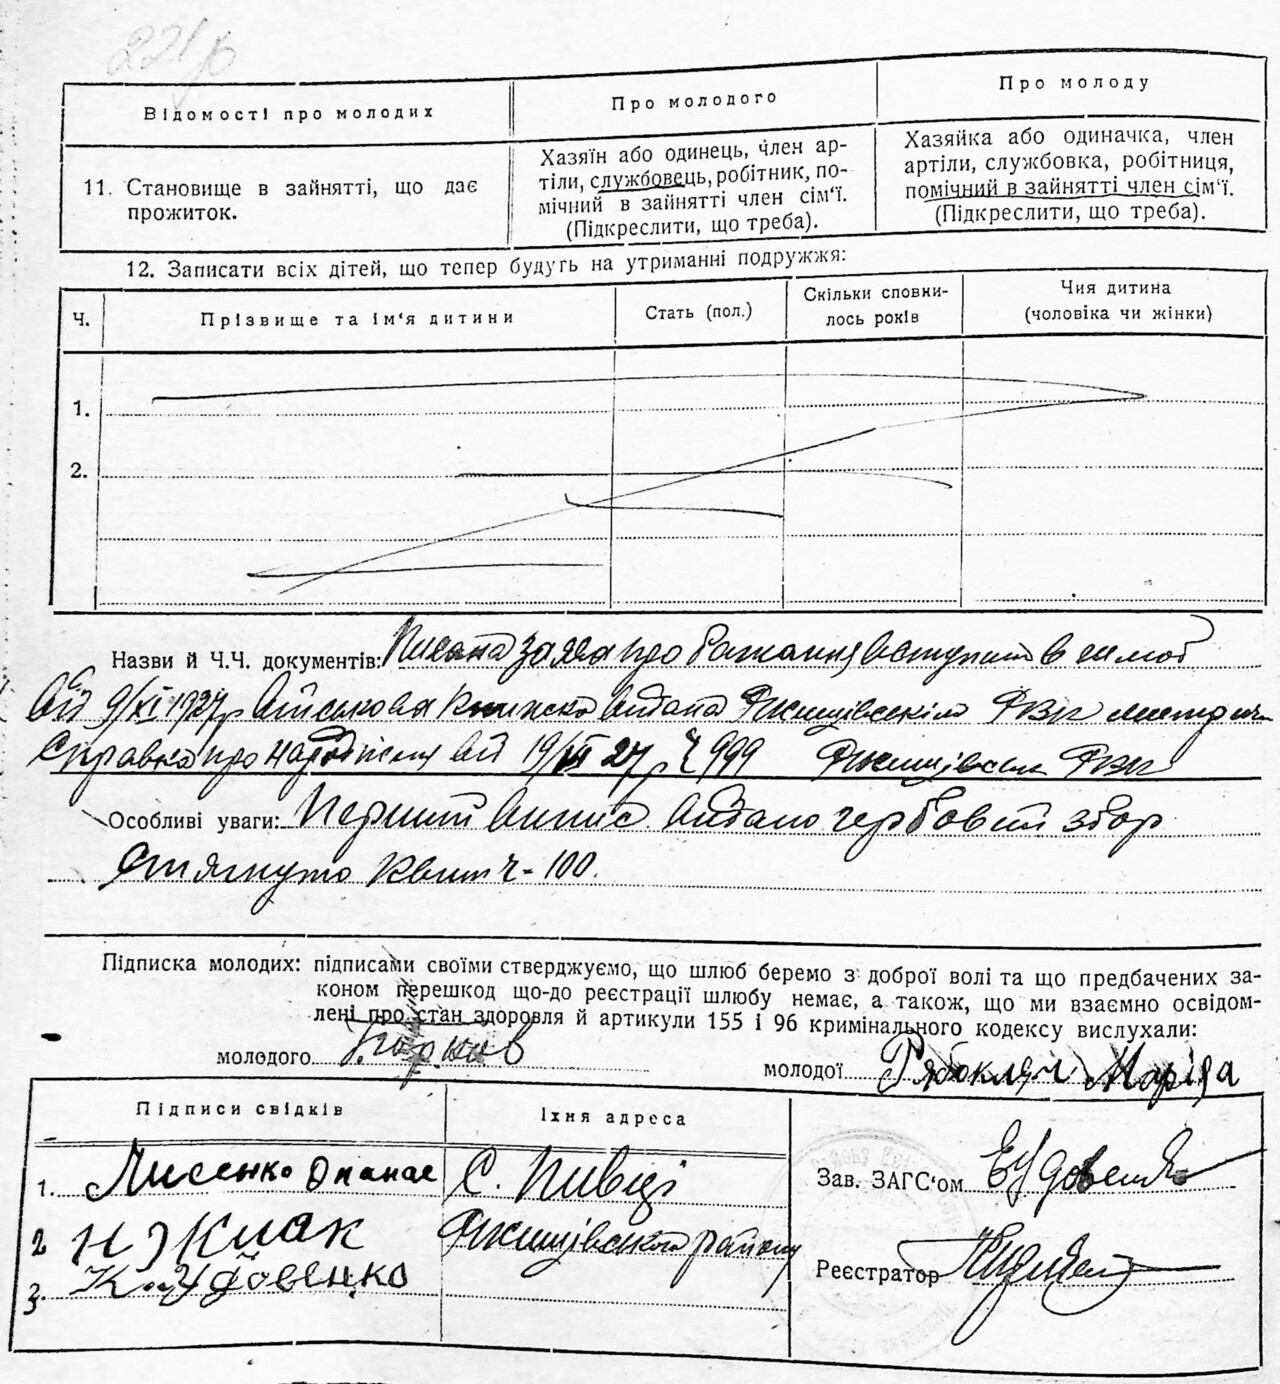 Відомості про молодих
Про молодого
Про молоду
11. Становище в зайнятті, що дає
прожиток.
Хазяїн або одинець, член ар-
тіли, службовець, робітник, по-
мічний в зайнятті член сім'ї.
(Підкреслити, що треба).
Хазяйка або одиначка, член
артіли, службовка, робітниця,
помічний в зайнятті член сім'ї.
(Підкреслити, що треба).
12. Записати всіх дітей, що тепер будуть на утриманні подружжя:
Ч.
Прізвище та ім'я дитини
Стать (пол.)
Скільки сповни-
лось років
Чия дитина
(чоловіка чи жінки)
1.
2.
Назви й Ч.Ч. документів: заява про бажання вступити в шлюб
від 9/XI 1927 р військова книжка видана Ржищівським РВК
Справка про народження від 27 р Ч 999 Ржищівськ РВК
Особливі уваги: Перший випис видано гербовий збор
стягнуто квит Ч-100.
Підписка молодих: підписами своїми стверджуємо, що шлюб беремо з доброї волі та що предбачених за-
коном перешкод що-до реєстрації шлюбу немає, а також, що ми взаємно освідом-
лені про стан здоровля й артикули 155 і 96 кримінального кодексу вислухали:
молодого
молодої Рябокляч Марія
Підписи свідків
Їхня адреса
1. Лисенко Опанас
С. Півці
Зав. ЗАГС'ом Е Удовенко
2
Ржищівського району
3. К. Удовенко
Реєстратор